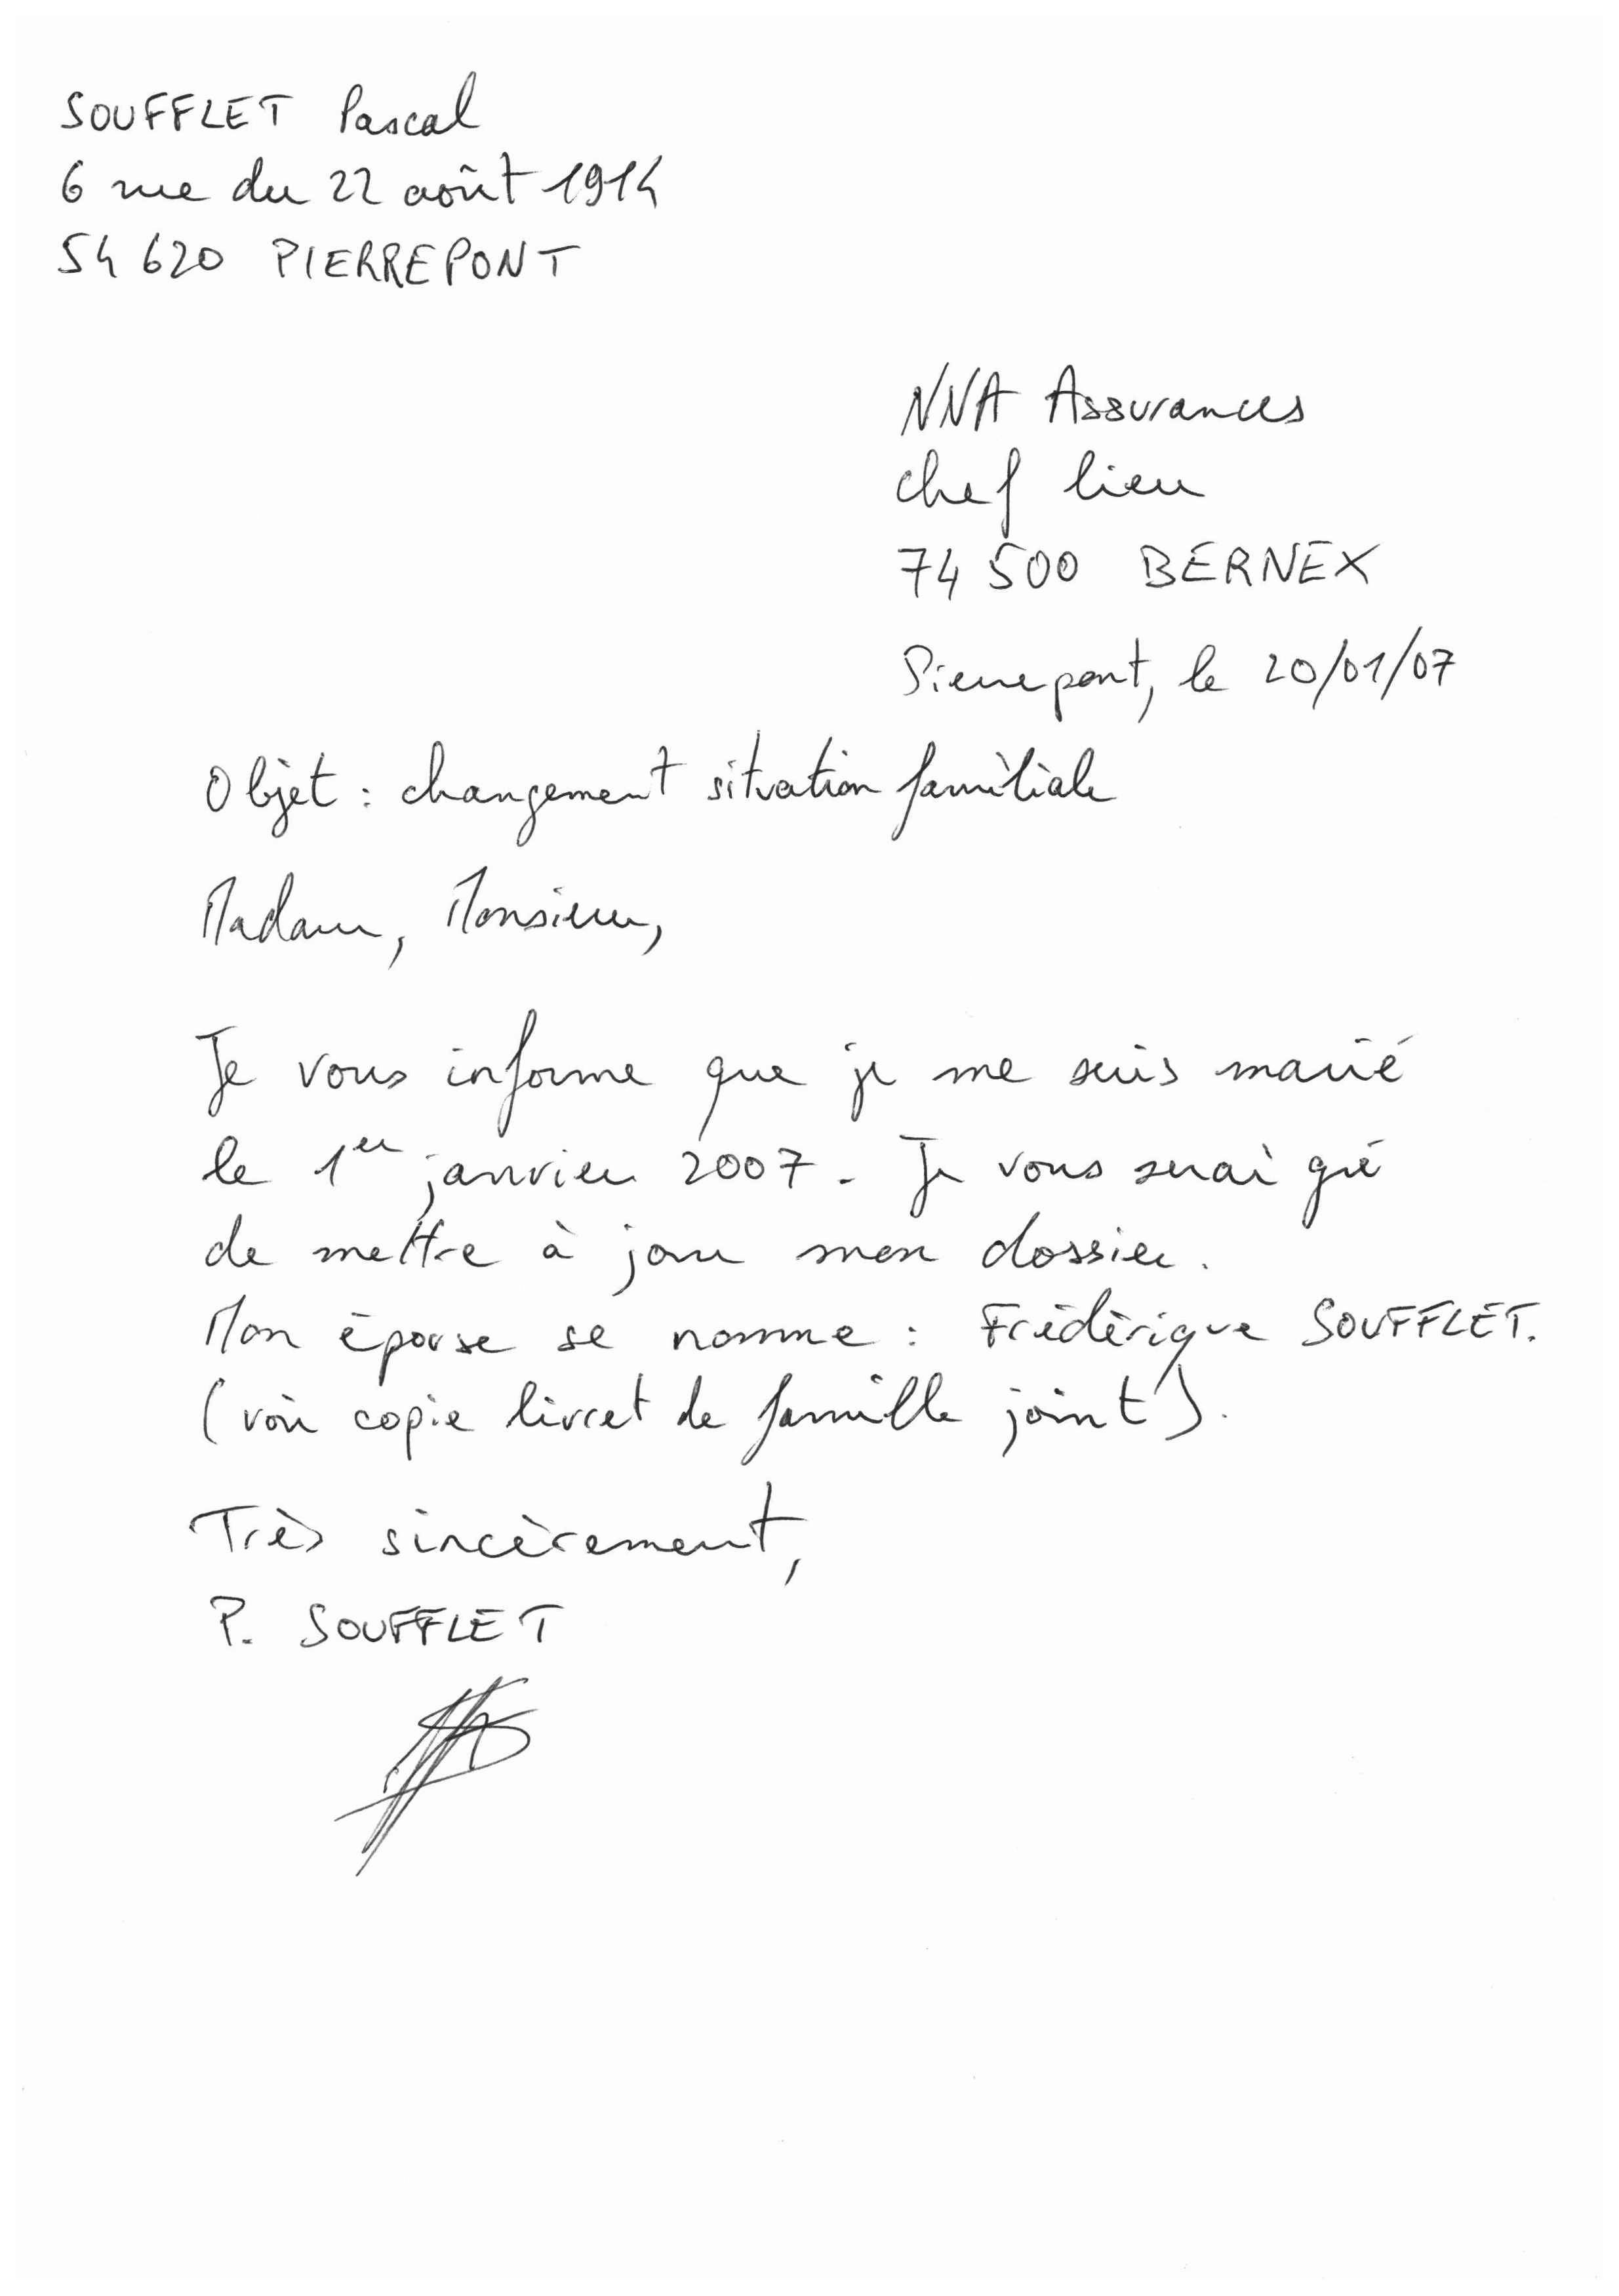 SOUFFLET Pascal
6 rue du 22 août 1914
54 620 PIERREPONT
NNA Assurances
chef lieu
74 500 BERNEX
Pierrepont, le 20/01/07
Objet : changement situation familiale
Madame, Monsieur,
Je vous informe que je me suis marié
le 1er janvier 2007. Je vous serai gré
de mettre à jour mon dossier.
Mon épouse se nomme : Frédérique SOUFFLET.
(voir copie livret de famille joint).
Très sincèrement,
P. SOUFFLET